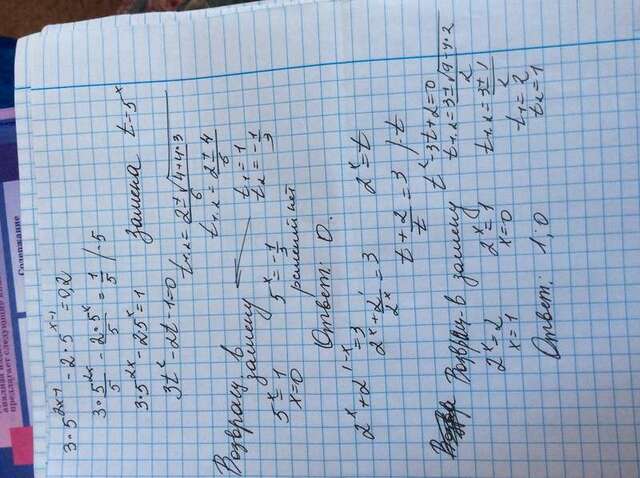 Содержание
3·5^2x-1 - 2·5^x-1 = 0,2
3·5^2x/5 - 2·5^x/5 = 1/5 /·5
3·5^2x - 2·5^x = 1
Замена t=5^x
3t^2 - 2t - 1 = 0
t1,2 = 2±√4+4·3/6
t1,2 = 2±4/6
t1 = 1
t2 = -1/3
Возвращ. в замену
5^x = 1
x = 0
5^x = -1/3
решений нет
Ответ: 0.
2^x + 2^1-x = 3
2^x + 2^1/2^x = 3
2^x = t
t + 2/t = 3 /·t
t^2 - 3t + 2 = 0
t1,2 = 3±√9-4·2/2
t1,2 = 3±1/2
t1 = 2
t2 = 1
Возвращ. в замену
2^x = 2
x = 1
2^x = 1
x = 0
Ответ: 1; 0